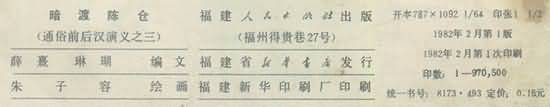 暗渡陈仓
(通俗前后汉演义之三)
薛熹琳珊 编文
朱子容 绘画
福建人民出版社出版
(福州得贵巷27号)
福建省新华书店发行
福建新华印刷厂印刷
开本787×1092 1/64 印张1 1/2
1982年2月第1版
1982年2月第1次印刷
印数: 1—970,500
统一书号: 8173·493 定价: 0.15元